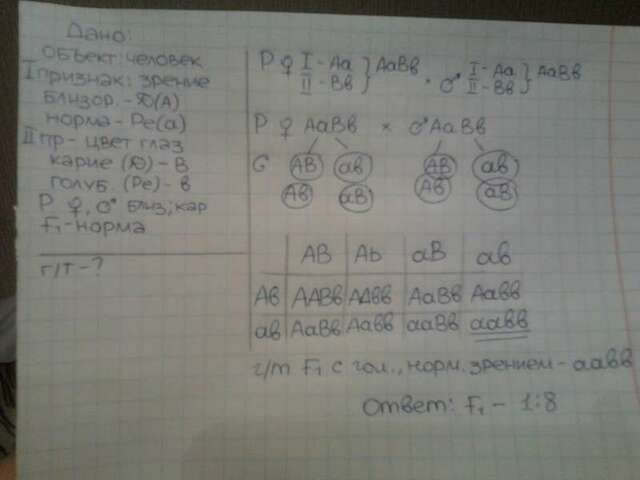 Дано:
объект: человек
I признак: зрение
близор. - Д(А)
норма - Ре(а)
II пр - цвет глаз
карие (Д) - В
голуб. (Ре) - в
Р ♀, ♂ близ; кар
F₁ - норма
г/т - ?
Р ♀ I - Аа } АаВв × ♂ I - Аа } АаВв
II - Вв II - Вв
Р ♀ АаВв × ♂ АаВв
G АВ ав АВ ав
Ав аВ Ав аВ
АВ Ав аВ ав
Ав ААВв ААвв АаВв Аавв
ав АаВв Аавв ааВв аавв
г/т F₁ с гол., норм. зрением - аавв
Ответ: F₁ - 1:8